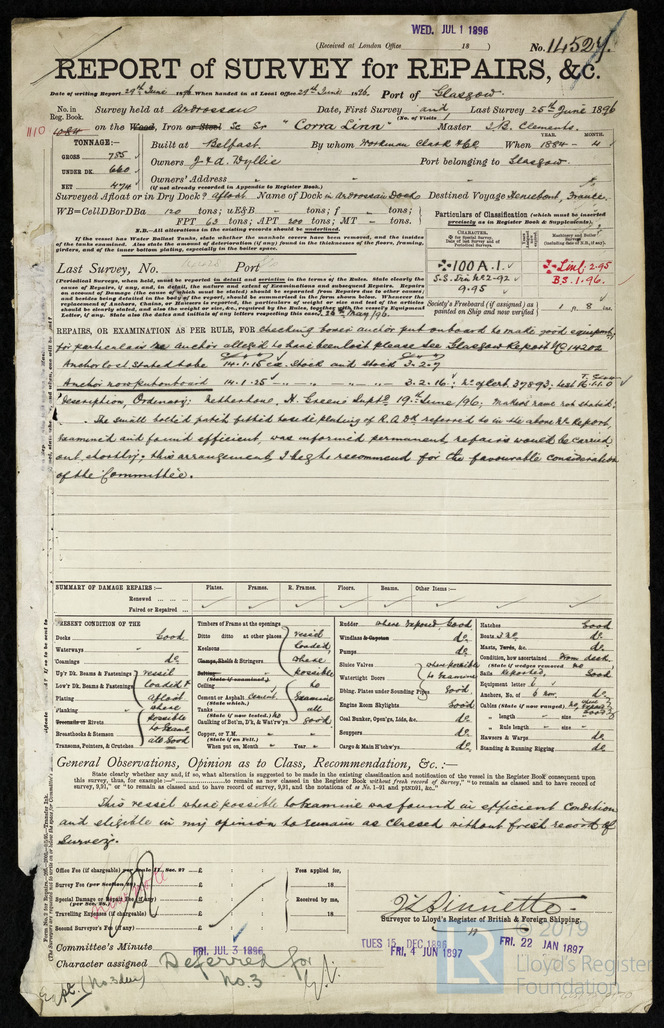 WED. JUL 1 1896
(Received at London Office 18 )
No. 14527.
REPORT of SURVEY for REPAIRS, &c.
Date of writing Report 29th June 1896 When handed in at Local Office 29th June 1896. Port of Glasgow.
No. in Reg. Book. Survey held at Ardrossan Date, First Survey and Last Survey 25th June 1896
(No. of Visits )
1110
on the Wood, Iron or Steel Sc Sr "Corra Linn" Master J.B. Clements.
TONNAGE:— Built at Belfast By whom Workman Clark & Co When 1884 - 4
YEAR. MONTH.
GROSS 785 Owners J & A. Wyllie Port belonging to Glasgow
UNDER DK. 660 Owners' Address
NET 474 (if not already recorded in Appendix to Register Book.)
Surveyed Afloat or in Dry Dock? Afloat Name of Dock in Ardrossan Dock Destined Voyage Hennebont, France.
WB=CellDBorDBa 120 tons; uE&B " tons; f " tons;
FPT 63 tons; APT 200 tons; MT " tons.
N.B.—All alterations in the existing records should be underlined.
If the vessel has Water Ballast Tanks, state whether the manhole covers have been removed, and the insides of the tanks examined. Also state the amount of deterioration (if any) found in the thickness of the floors, framing, girders, and of the inner bottom plating, especially in the boiler space.
Particulars of Classification (which must be inserted precisely as in Register Book & Supplements).
CHARACTER.
Machinery and Boiler Surveys (including date of N.B., if any).
100 A.1.
S.S. 9.95
2.95
B.S. 1.96.
Last Survey, No. Port
(Periodical Surveys, when held, must be reported in detail and seriatim in the terms of the Rules. State clearly the cause of Repairs, if any, and, in detail, the nature and extent of Examinations and subsequent Repairs. Repairs on account of Damage (the cause of which must be stated) should be separated from Repairs due to other causes; and besides being detailed in the body of the report, should be summarized in the form shown below. Whenever the replacement of Anchors, Chain, or Hawsers is reported, the particulars of weight or size and test of the articles should be clearly stated, and also the weight or size, &c., required by the Rules, together with the vessel's Equipment Letter, if any. State also the dates and initials of any letters respecting this case. 26th May/96.
Society's Freeboard (if assigned) as painted on Ship and now verified 1 ft. 8 ins.
REPAIRS, OR EXAMINATION AS PER RULE, FOR checking bower anchor put onboard to make good equipment,
for particulars re anchor alleged to have been lost please see Glasgow Report No 14202
Anchor lost stated to be 14-1-15 ex. Stock and stock 3-2-7
Anchor now put onboard 14-1-25 " — " — " — " 3-2-16; No of Cert. 37893; test
Description, Ordinary; Netherton, H. Green Supt. 19th June/96; Makers name not stated.
The small bolted patch fitted to side plating of R.Q.Dk referred to in the above No Report,
examined and found efficient, was informed permanent repairs would be carried
out shortly; this arrangement I beg to recommend for the favourable consideration
of the Committee.
SUMMARY OF DAMAGE REPAIRS:— Plates. Frames. R. Frames. Floors. Beams. Other Items:—
Renewed ... ...
Faired or Repaired ...
PRESENT CONDITION OF THE
Decks Good
Waterways "
Coamings do
Up'r Dk. Beams & Fastenings
Low'r Dk. Beams & Fastenings
Plating
Planking
Treenails or Rivets
Breasthooks & Stemson
Transoms, Pointers, & Crutches
vessel loaded & afloat where possible to examine all Good
Timbers of Frame at the openings
Ditto ditto at other places
Keelsons
Clamps, Shelfs & Stringers
Ceiling
Cement or Asphalt Cement.
(State which.)
Tanks
(State if now tested.) no
Caulking of Bot'm, D'k, & Wat'rw'ys
Copper, or Y.M.
(State if on Felt.)
When put on, Month " Year "
vessel loaded where possible to examine all good
Rudder where exposed, Good
Windlass & Capstan do
Pumps do
Sluice Valves
Watertight Doors
where possible to examine
Dbling. Plates under Sounding Pipes Good.
Engine Room Skylights Good
Coal Bunker, Open'gs, Lids, &c. do
Scuppers do
Cargo & Main H'tchw'ys do
Hatches Good
Boats do
Masts, Yards, &c. do
Condition, how ascertained From deck
(State if wedges removed.) no
Sails Reported, Good
Equipment letter
Anchors, No. of 6 nos. do
Cables (State if now ranged) no Good
" length " size "
" Rule length " size "
Hawsers & Warps do
Standing & Running Rigging do
General Observations, Opinion as to Class, Recommendation, &c. :—
State clearly whether any, and if so, what alteration is suggested to be made in the existing classification and notification of the vessel in the Register Book consequent upon this survey, thus, for example:—" to remain as now classed in the Register Book without fresh record of Survey," "to remain as classed and to have record of survey, 9,91," or "to remain as classed and to have record of survey, 9,91, and the notations of ss No. 1-91 and ptND91, &c."
This vessel where possible to examine was found in efficient condition
and eligible in my opinion to remain as classed without fresh record of
Survey.
Office Fee (if chargeable) per Scale II, Sec. 27 £
Survey Fee (per Section 28) £
Special Damage or Repair Fee (if any) (per Sec. 28.) £
Travelling Expenses (if chargeable) £
Second Surveyor's Fee (if any) £
Fees applied for,
18
Received by me,
18
Surveyor to Lloyd's Register of British & Foreign Shipping.
Committee's Minute
FRI. JUL 3 1896
TUES 15 DEC 1896
FRI. 4 JUN 1897
FRI. 22 JAN 1897
Character assigned Deferred for
No. 3
© 2019
LR
Lloyd's Register
Foundation